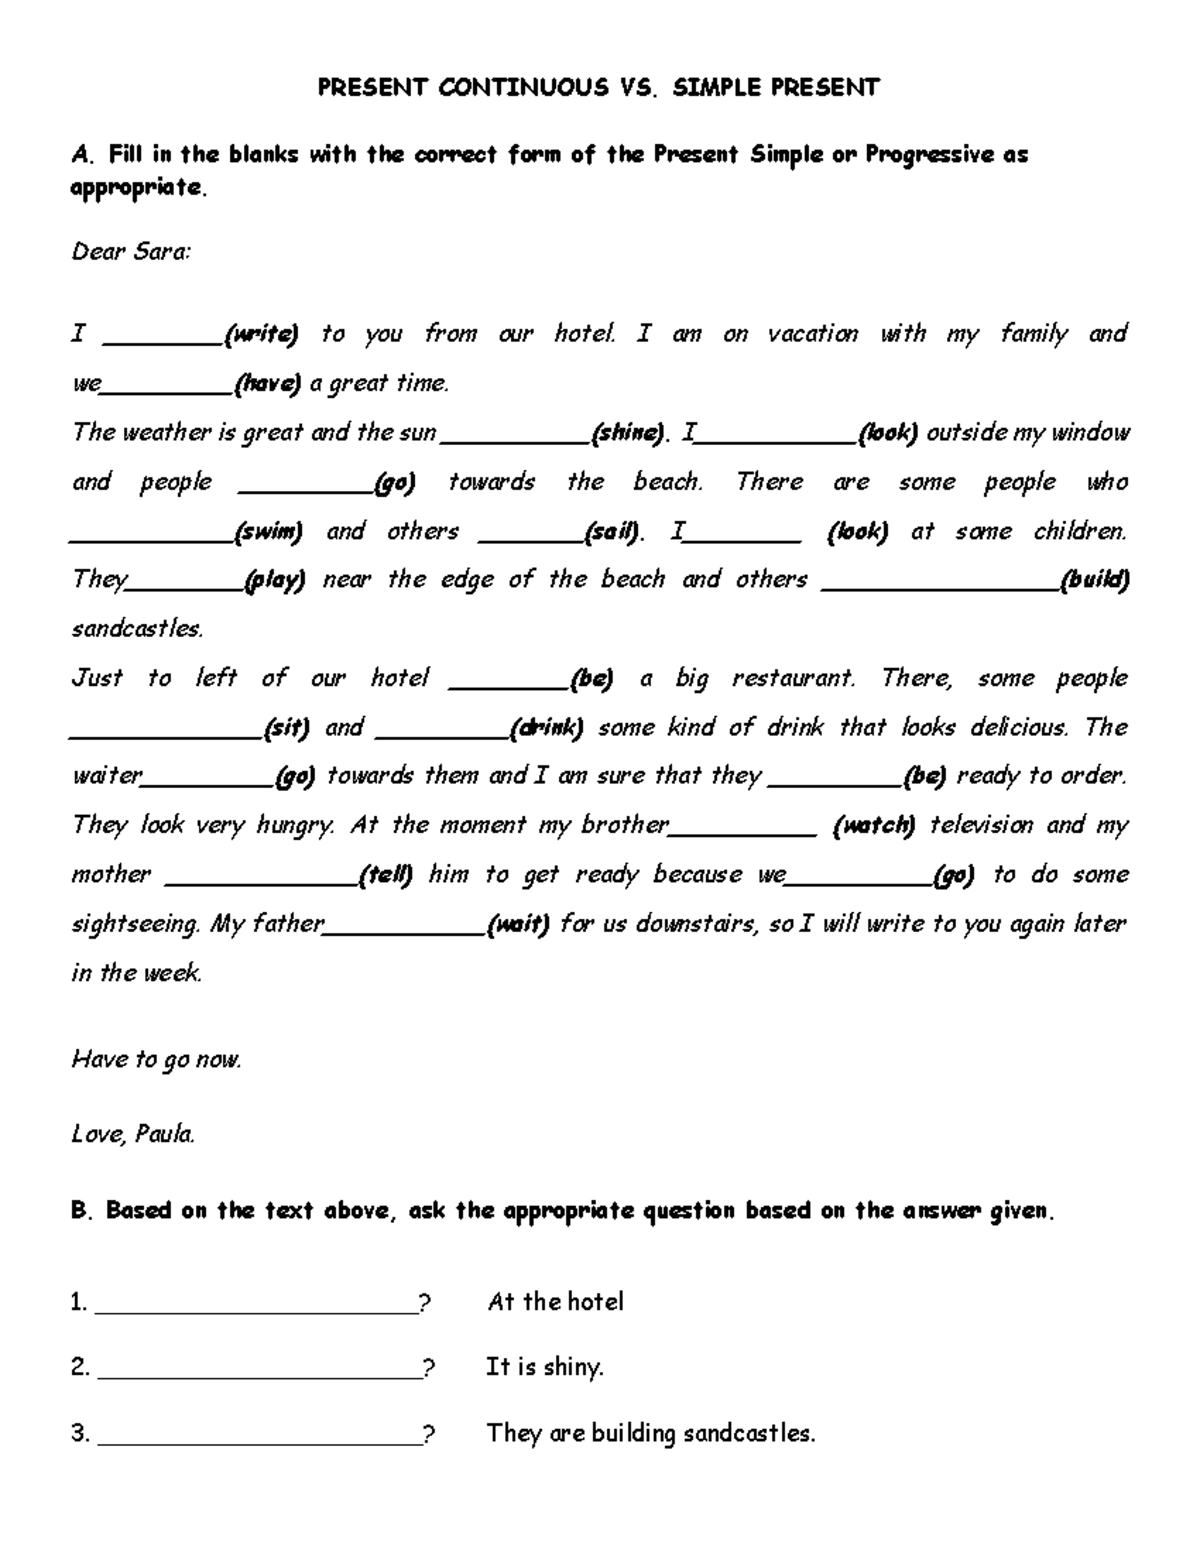 PRESENT CONTINUOUS VS. SIMPLE PRESENT
A. Fill in the blanks with the correct form of the Present Simple or Progressive as
appropriate.
Dear Sara:
I _________(write) to you from our hotel. I am on vacation with my family and
we__________(have) a great time.
The weather is great and the sun ___________(shine). I____________(look) outside my window
and people __________(go) towards the beach. There are some people who
____________(swim) and others ________(sail). I_________ (look) at some children.
They_________(play) near the edge of the beach and others __________________(build)
sandcastles.
Just to left of our hotel _________(be) a big restaurant. There, some people
______________(sit) and __________(drink) some kind of drink that looks delicious. The
waiter__________(go) towards them and I am sure that they __________(be) ready to order.
They look very hungry. At the moment my brother___________ (watch) television and my
mother ______________(tell) him to get ready because we___________(go) to do some
sightseeing. My father____________(wait) for us downstairs, so I will write to you again later
in the week.
Have to go now.
Love, Paula.
B. Based on the text above, ask the appropriate question based on the answer given.
1. ________________________? At the hotel
2. ________________________? It is shiny.
3. ________________________? They are building sandcastles.